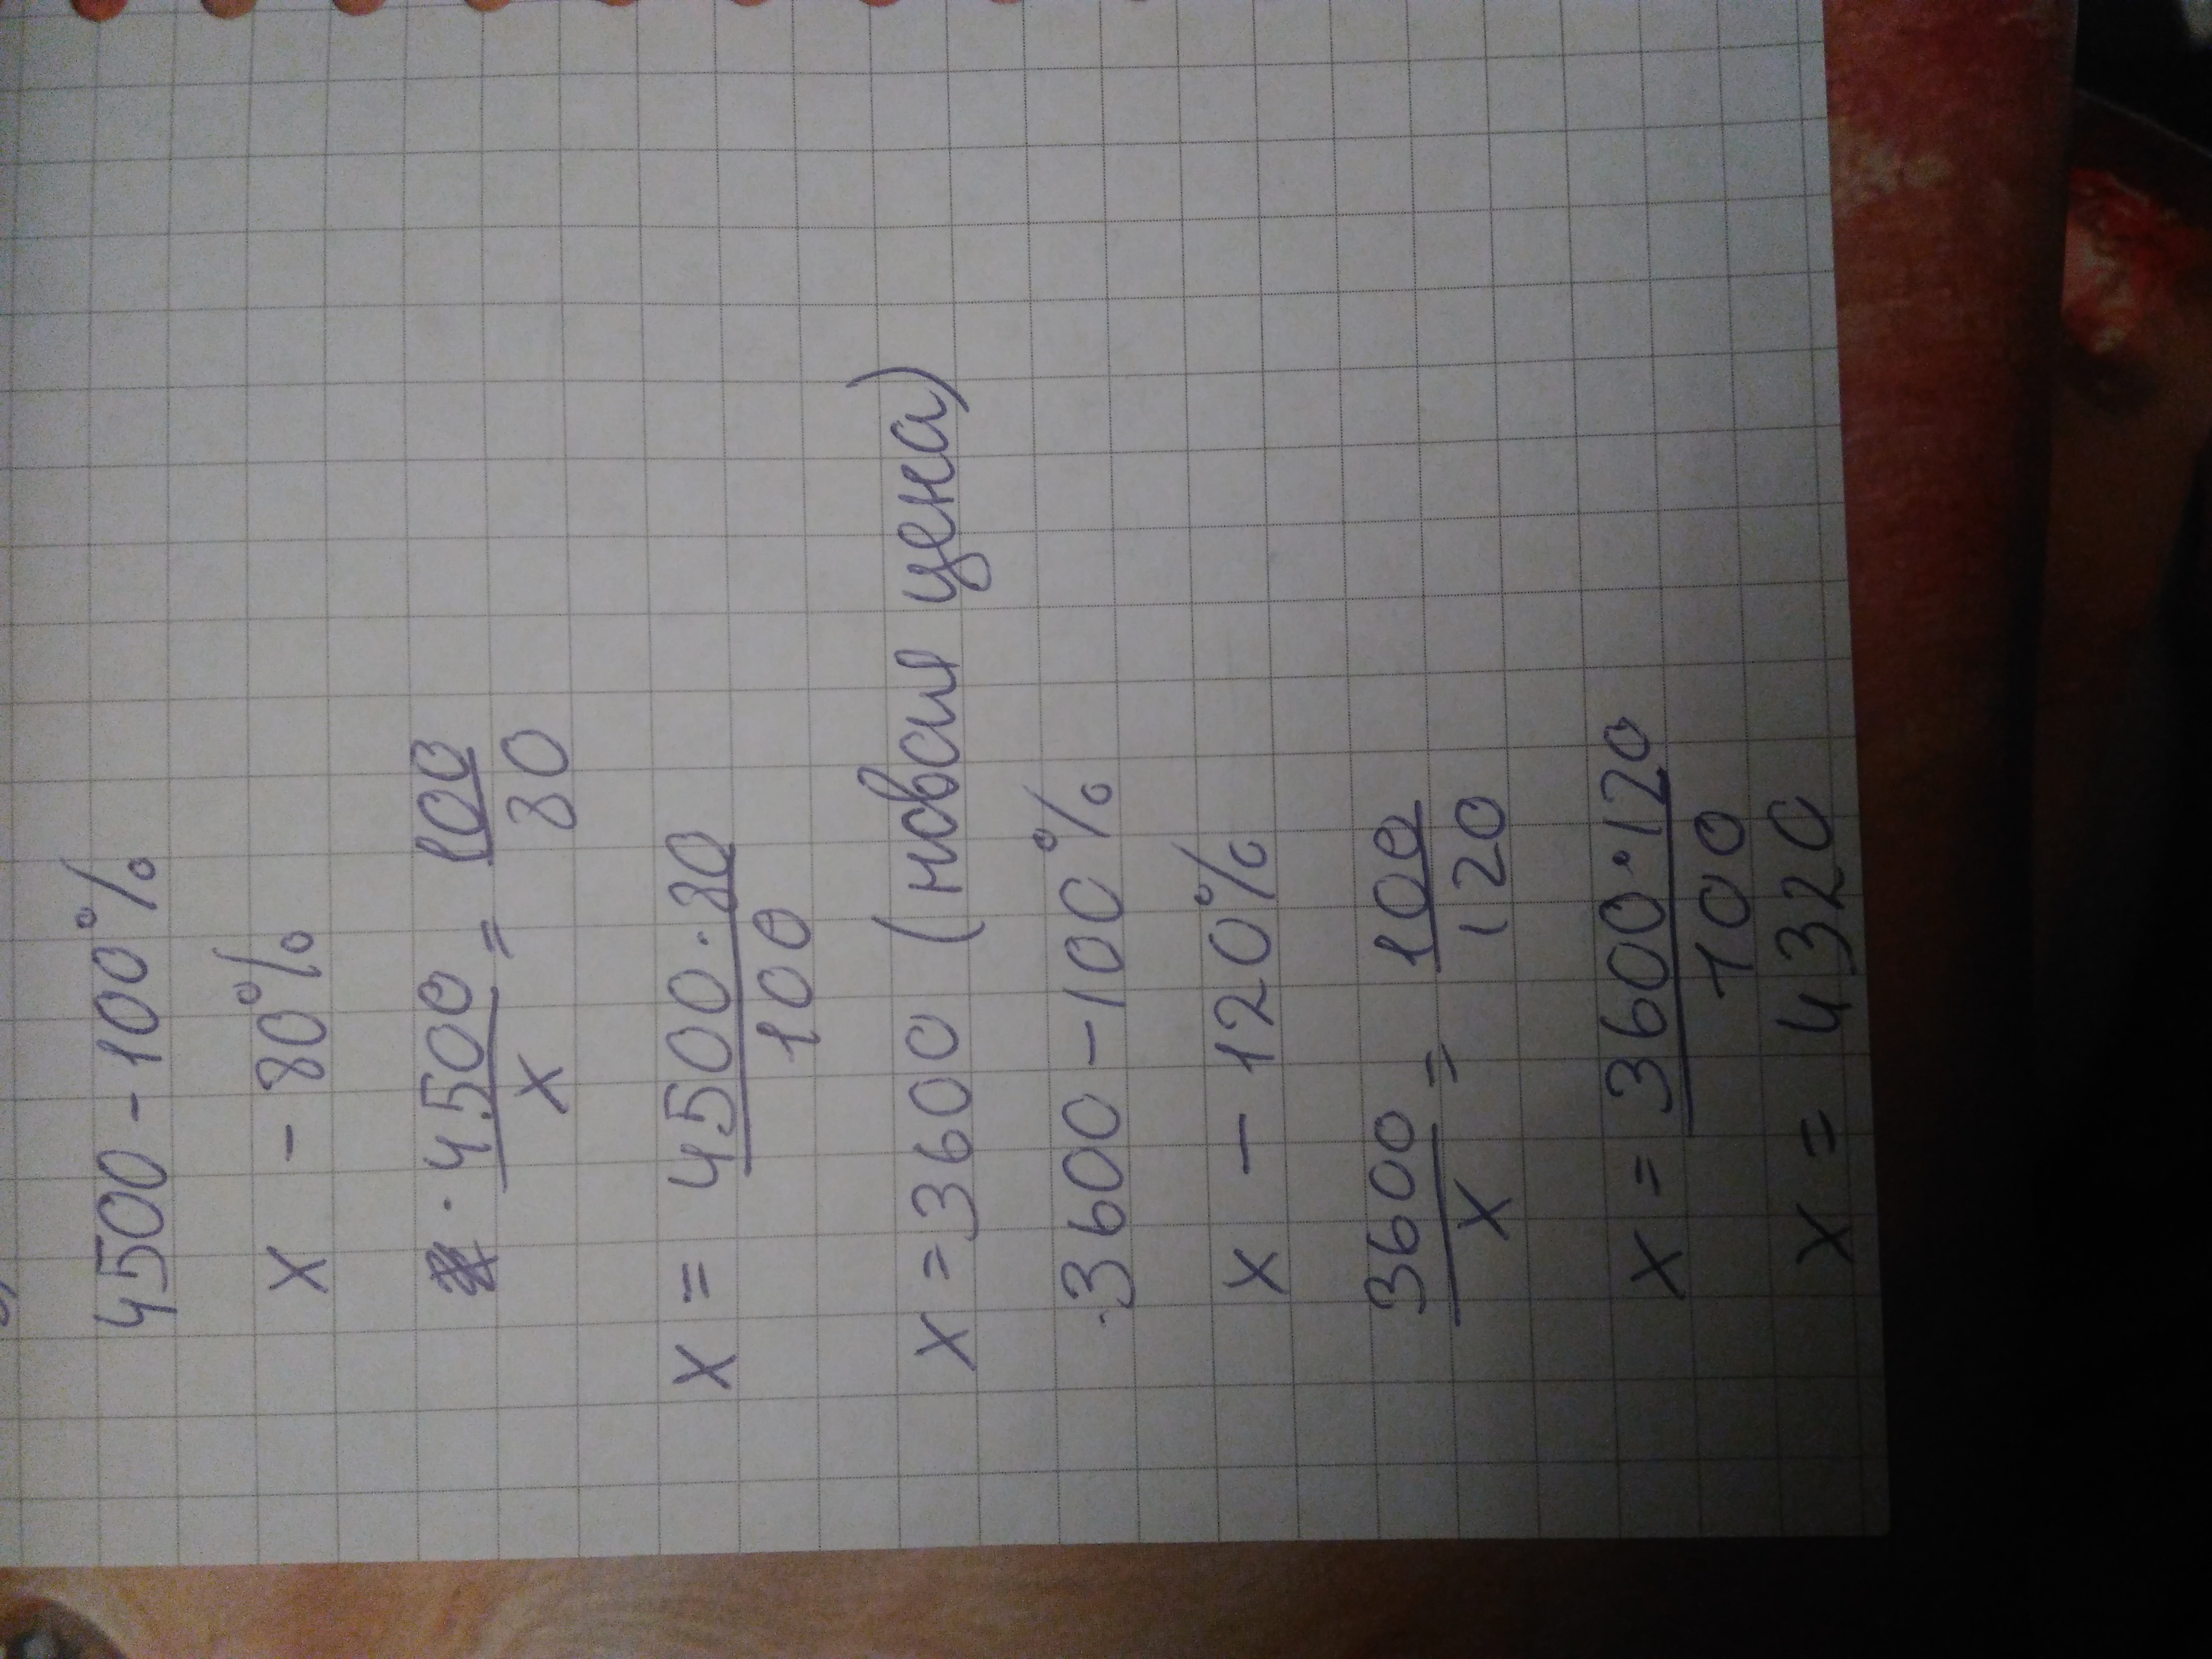 4500 - 100%
x - 80%
· 4500/x = 100/80
x = 4500·80/100
x = 3600 (новая цена)
3600 - 100%
x - 120%
3600/x = 100/120
x = 3600·120/100
x = 4320